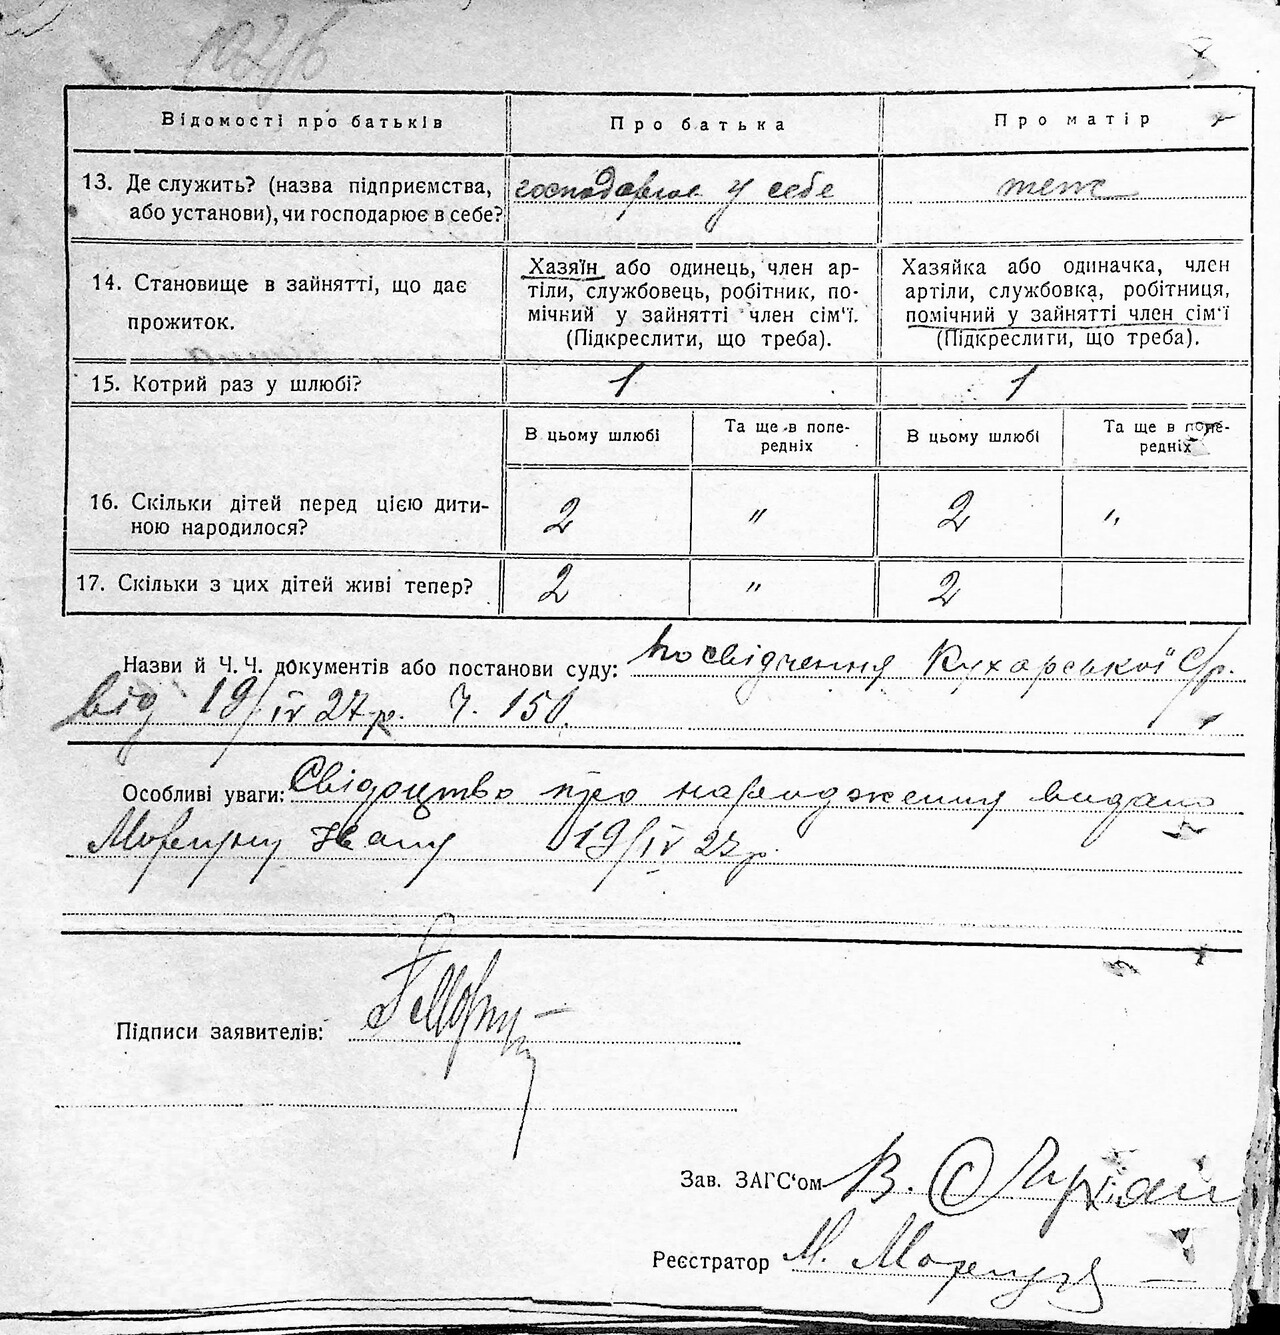 Відомості про батьків
Про батька
Про матір
13. Де служить? (назва підприємства,
або установи), чи господарює в себе?
господарює у себе
теж
14. Становище в зайнятті, що дає
прожиток.
Хазяїн або одинець, член ар-
тіли, службовець, робітник, по-
мічний у зайнятті член сім'ї.
(Підкреслити, що треба).
Хазяйка або одиначка, член
артіли, службовка, робітниця,
помічний у зайнятті член сім'ї
(Підкреслити, що треба).
15. Котрий раз у шлюбі?
1
1
В цьому шлюбі
Та ще в попе-
редніх
В цьому шлюбі
Та ще в попе-
редніх
16. Скільки дітей перед цією дити-
ною народилося?
2
"
2
"
17. Скільки з цих дітей живі тепер?
2
"
2
Назви й Ч. Ч. документів або постанови суду: Посвідчення Кухарської с/р.
від 19/IV 27 р. Ч. 150.
Особливі уваги: Свідоцтво про народження видано
Івану 19/IV 27 р.
Підписи заявителів:
Зав. ЗАГС'ом В.
Реєстратор М.